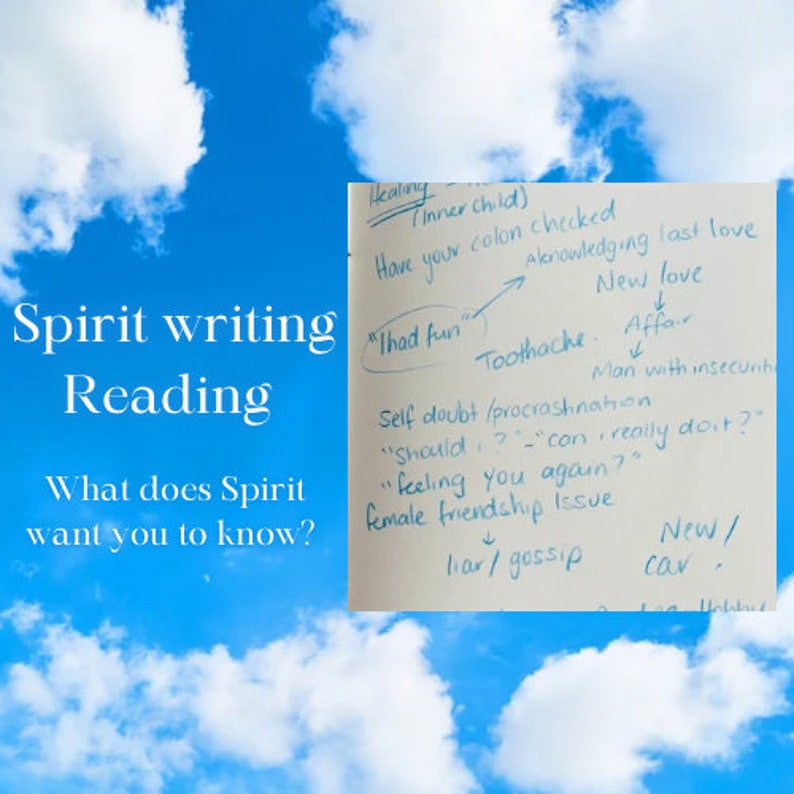 Spirit writing
Reading
What does Spirit
want you to know?
Healing
(Inner child)
Have your colon checked
Aknowledging last love
New love
"I had fun"
Affair
Toothache.
Man with
self doubt/procrastination
"should i?" - "can i really do it?"
"feeling you again?"
female friendship Issue
liar/ gossip
New/
car.
Hobby